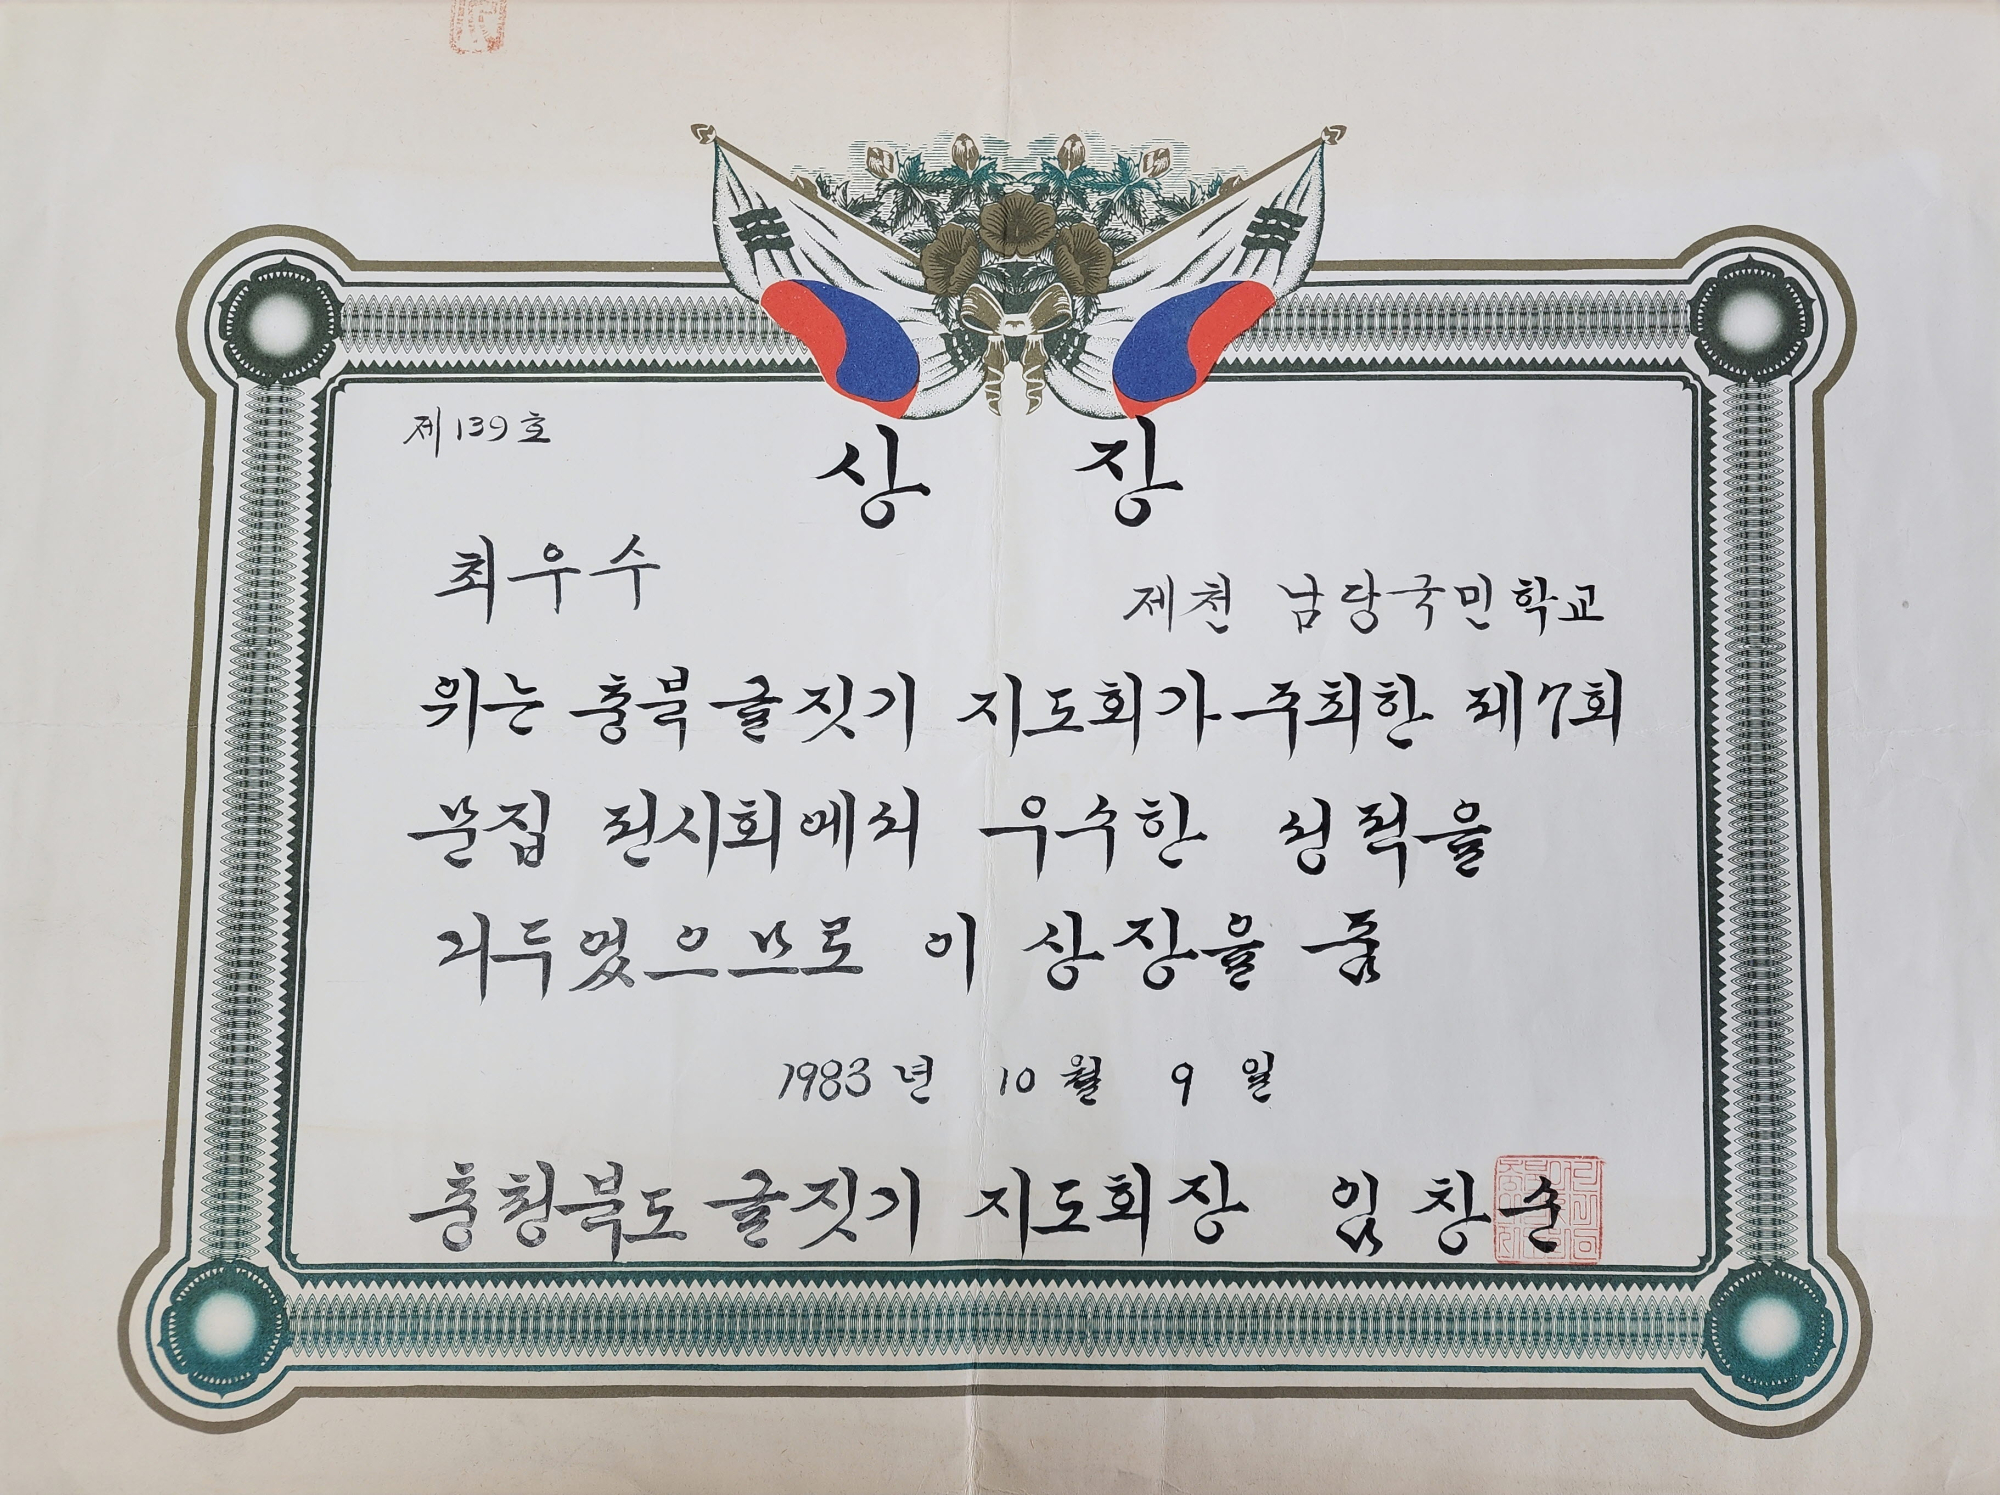 제139호
상 장
최우수
제천 남당국민학교
위는 충북글짓기 지도회가 주최한 제7회
문집 전시회에서 우수한 성적을
거두었으므로 이 상장을 줌
1983년 10월 9일
충청북도글짓기 지도회장 임창순